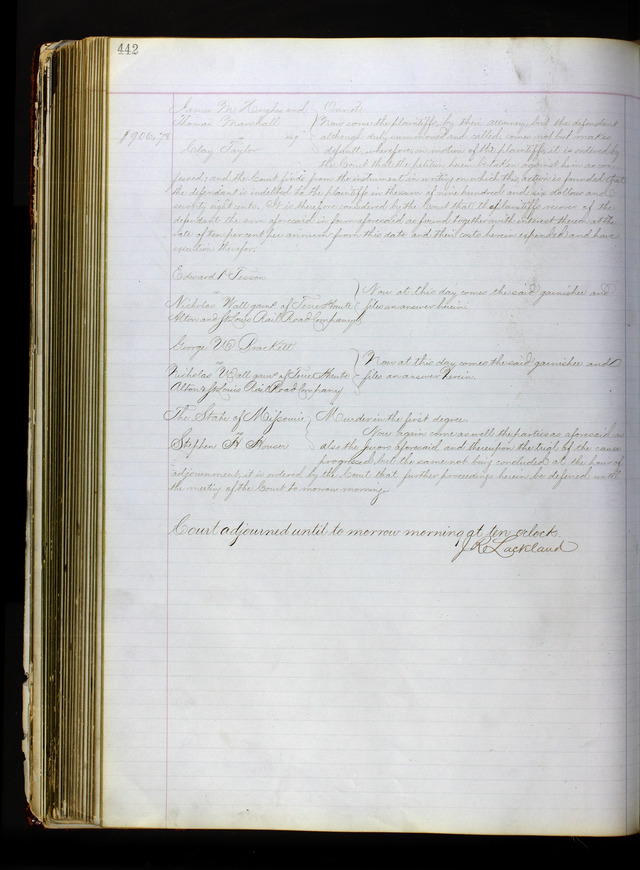 442
James M. Hughes and } Debt
Thomas Marshall } Now come the plaintiffs by their attorney but the defendant
$906.78 vs } although duly summoned and called, comes not but makes
Clay Taylor } default, wherefore, on motion of the plaintiffs, it is ordered by
the Court that the petition herein be taken against him as con
fessed; and the Court finds from the instrument in writing on which this action is founded, that
the defendant is indebted to the plaintiffs in the sum of nine hundred and six dollars and
seventy eight cents. It is therefore considered by the Court that the plaintiffs recover of the
defendant the sum aforesaid in form aforesaid as found, together with interest thereon at the
rate of ten per cent per annum from this date and their costs herein expended and have
execution therefor.
Edward P. Tesson
vs } Now at this day comes the said garnishee and
Nicholas Wall garn. of Terre Haute } files an answer herein.
Alton and St Louis Rail Road Company
George W Brackett
vs } Now at this day comes the said garnishee and
Nicholas Wall garn. of Terre Haute } files an answer herein.
Alton & St Louis Rail Road Company
The State of Missouri } Murder in the first degree.
vs } Now again come as well the parties aforesaid as
Stephen H Houser } also the Jurors aforesaid and thereupon the trial of the cause
progressed, but the same not being concluded at the hour of
adjournment, it is ordered by the Court that further proceedings herein be defered until
the meeting of the Court to morrow morning.
Court adjourned until to morrow morning at ten oclock.
J R Lackland